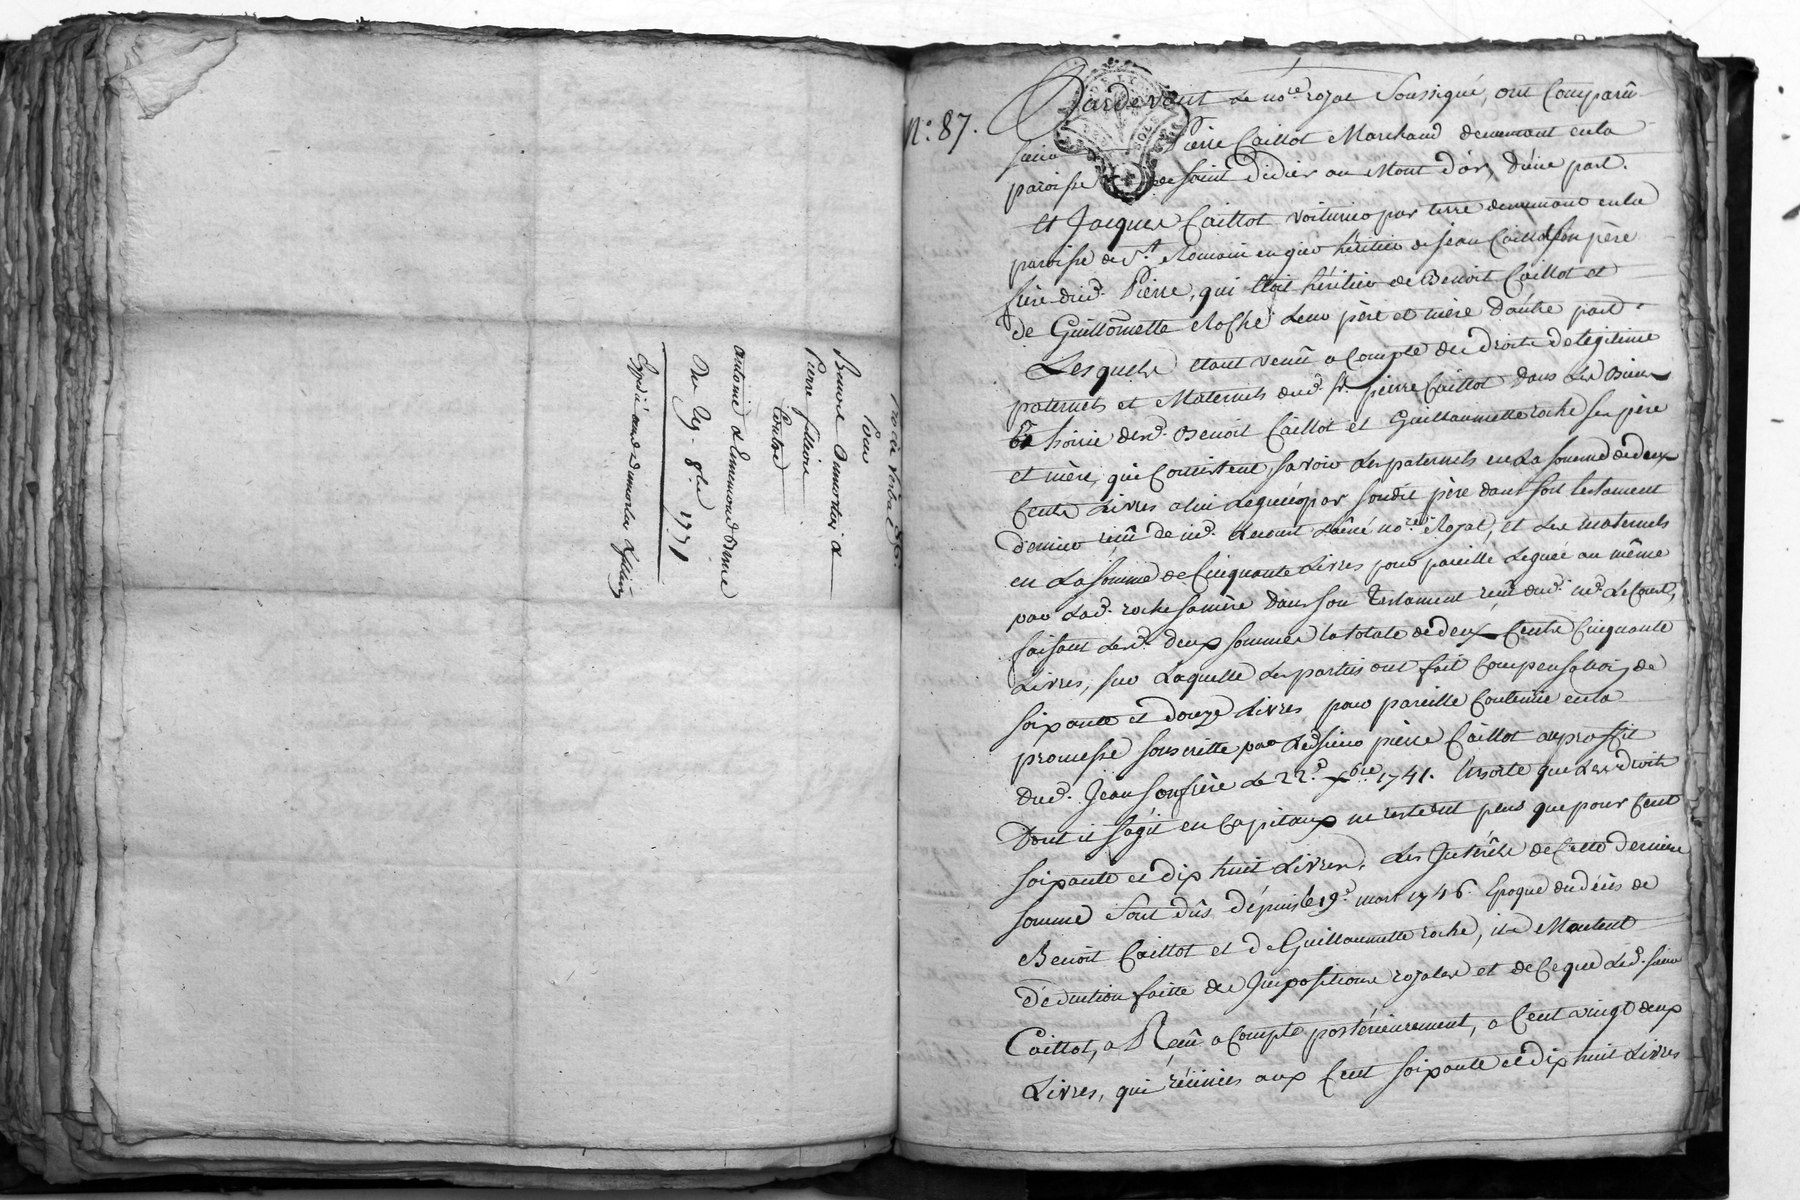 86.
Procès Verbal
Pour
Benoit
Pierre
Contre
antoine &
Du 29. 8bre 1771
Expedié aud.
N.° 87.
Pardevant Le no.re royal Soussigné, ont Comparû
sieur Pierre Caillot Marchand demeurant en la
paroisse de saint Didier au Mont d'or, d'une part.
Et Jacques Caillot voiturier par terre demeurant en la
paroisse de S.t Romain en gier héritier de Jean Caillot son père
frère dud. Pierre, qui étoit héritier de Benoit Caillot et
de Guillomette Roche Leur père et mère d'autre part.
Lesquels étant venû a Compte des droits de légitime
paternels et Maternels dud. Sr. pierre Caillot dans Les Biens
et hoirie desd. Benoit Caillot et Guillaumette roche ses père
et mère, qui Consistent, savoir Les paternels en La somme de deux
Cents Livres a lui Leguée par sondit père dans son testament
dernier reçû de me. Lecourt L'aîné no.re Royal, et Les maternels
en La somme de Cinquante Livres pour pareille Leguée au même
par Lad. roche sa mère dans son Testament reçû dud. me. LeCourt,
faisant Lesd. deux sommes la totale de deux Cents Cinquante
Livres, sur Laquelle Les parties ont fait Compensation de
soixante et douze Livres pour pareille Contenue en la
promesse souscritte par Led. sieur pierre Caillot au proffit
dud. Jean son frère Le 22.e xbre 1741. Ensorte que Les droits
Dont il s'agit en Capitaux ne restent plus que pour Cent
soixante et dix huit Livres. Les Intérêts de Cette dernière
somme Sont dûs depuis le 19.e mars 1746. Epoque du décès de
Benoit Caillot et de Guillaumette roche, ils Montent
déduction faitte des Impositions royales et de Ceque Led. sieur
Caillot, a Reçû a Compte postérieurement, a Cent vingt deux
Livres, qui réünies aux Cent soixante et dix huit Livres